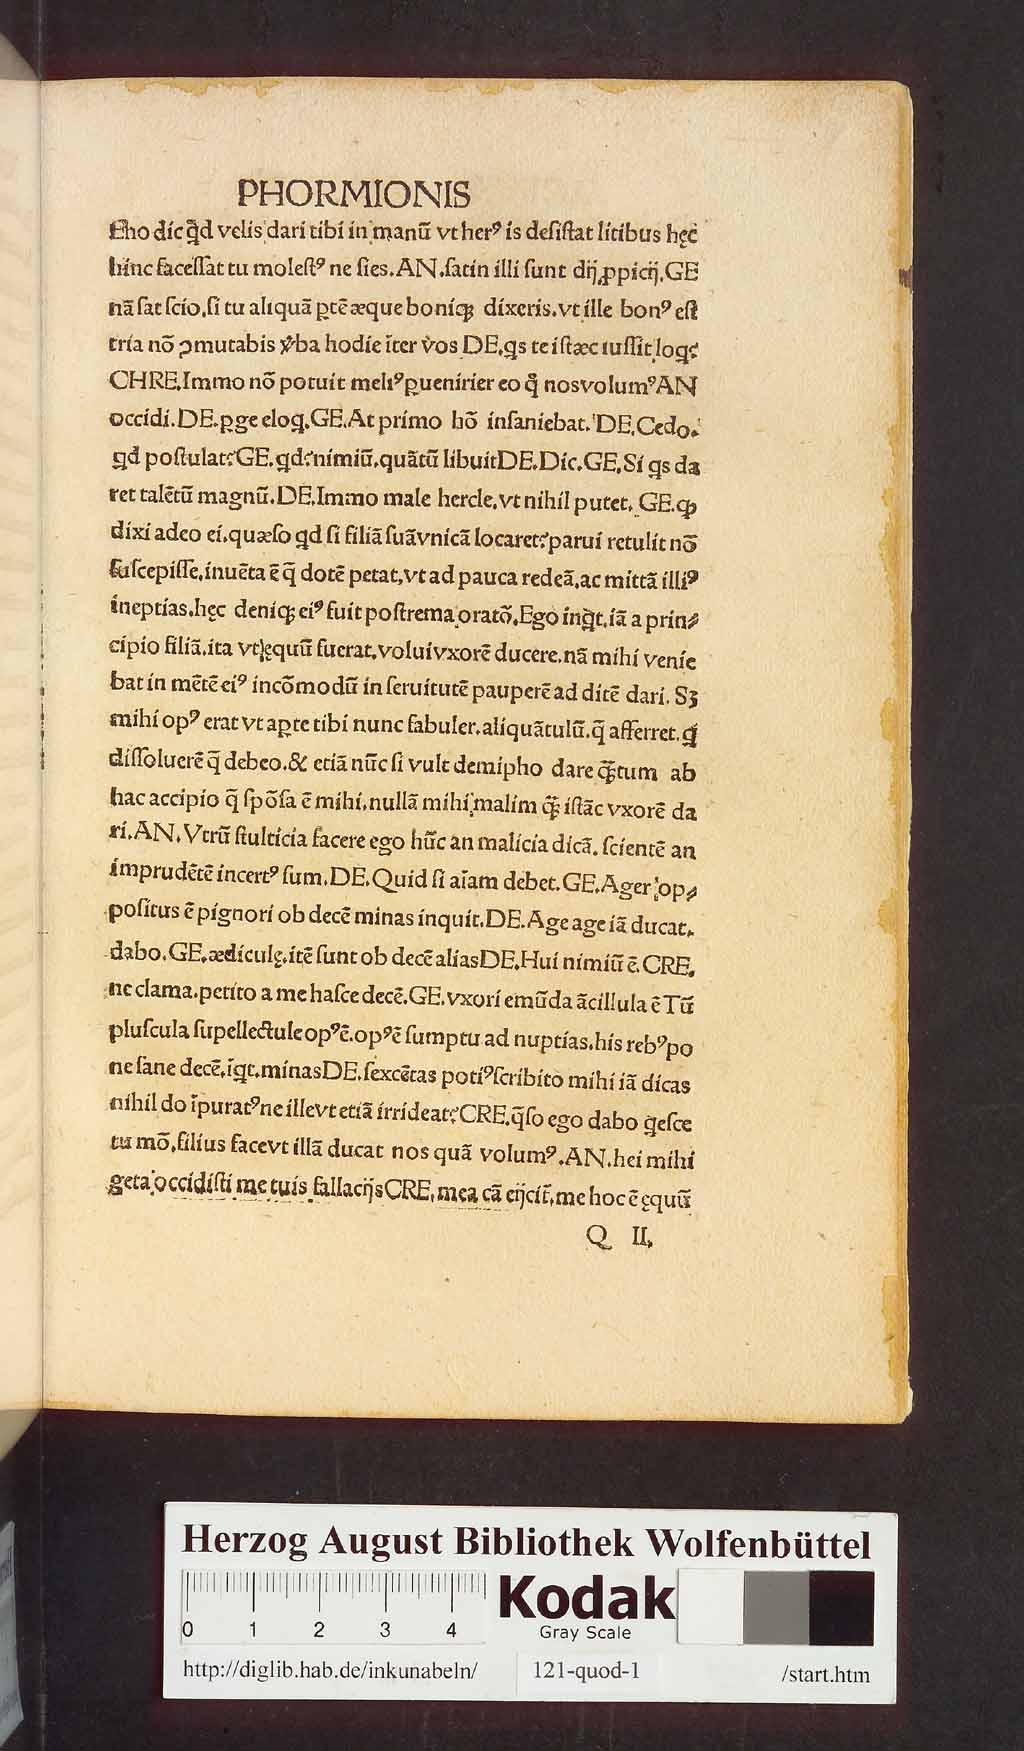 PHORMIONIS
Eho dic qͥd velis dari tibi in manū vt herꝰ is desistat litibus hęc
hinc facessat tu molestꝰ ne sies. AN. satin illi sunt dij ꝓpicij. GE
nā sat scio. si tu aliquā ꝑtē æque boniqꝫ dixeris. vt ille bonꝰ est
tria nō ꝯmutabis v̓ba hodie īter vos DE. qs te istæc iussit loq?
CHRE. Immo nō potuit meliꝰ ꝑuenirier eo q̊ nos volumꝰ AN
occidi. DE. ꝑge eloq. GE. At primo hō insaniebat. DE. Cedo.
qd postulat? GE. qd? nimiū. quātū libuit DE. Dic. GE. Si qs da
ret talētū magnū. DE. Immo male hercle, vt nihil putet. GE. ꝙ
dixi adeo ei. quæso qd si filiā suā vnicā locaret? parui retulit nō
suscepisse. inuēta ē q̄ dotē petat, vt ad pauca redeā. ac mittā illiꝰ
ineptias. hęc deniqꝫ eiꝰ fuit postrema oratō. Ego inqͥt. iā a prin⸗
cipio filiā. ita vt ęquū fuerat. volui vxorē ducere. nā mihi venie
bat in mētē eiꝰ incōmodū in seruitutē pauperē ad ditē dari. Sꝫ
mihi opꝰ erat vt aꝑte tibi nunc fabuler. aliquātulū. q̄ afferret. q
dissoluerē q̄ debeo. & etiā nūc si vult demipho dare qᷓtum ab
hac accipio q̄ spōsa ē mihi. nullā mihi malim qᷓ istāc vxorē da
ri. AN. Vtrū stulticia facere ego hūc an malicia dicā. scientē an
imprudētē incertꝰ sum. DE. Quid si aīam debet. GE. Ager op⸗
positus ē pignori ob decē minas inquit. DE. Age age iā ducat.
dabo. GE. ædiculę. itē sunt ob decē alias DE. Hui nimiū ē. CRE.
ne clama. petito a me hasce decē. GE. vxori emūda ācillula ē Tū
pluscula supellectule opꝰ ē. opꝰ ē sumptu ad nuptias. his rebꝰ po
ne sane decē. īqͥt. minas DE. sexcētas potiꝰ scribito mihi iā dicas
nihil do īpuratꝰ ne ille vt etiā irrideat? CRE. q̄so ego dabo qͥesce
tu mō. filius face vt illā ducat nos quā volumꝰ. AN. hei mihi
geta occidisti me tuis fallacijs CRE. mea cā eijcit̄. me hoc ē ęquū
Q II.
Herzog August Bibliothek Wolfenbüttel
0 1 2 3 4
Kodak
Gray Scale
http://diglib.hab.de/inkunabeln/ 121-quod-1 /start.htm